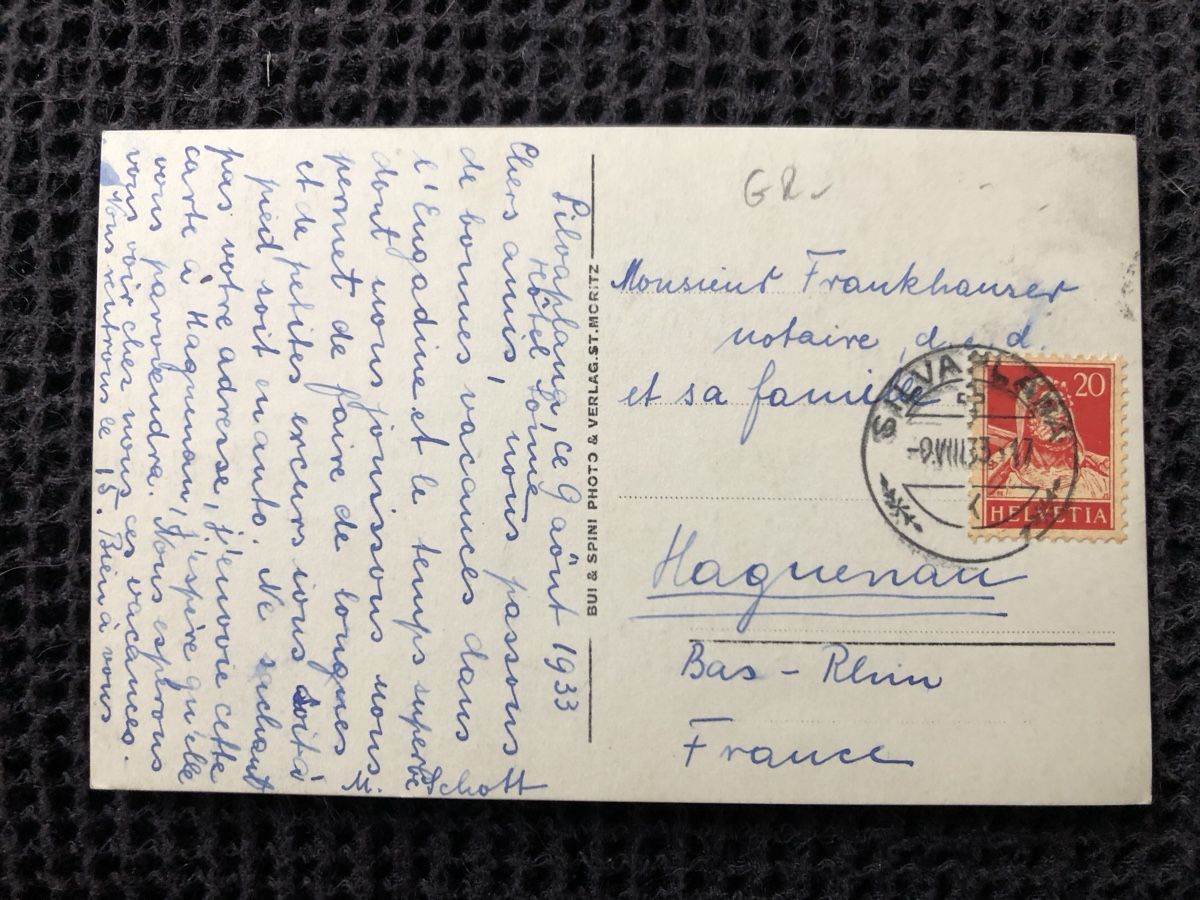 Silvaplana, ce 9 août 1933
Hôtel Sonne
Chers amis, nous passons
de bonnes vacances dans
l'Engadine et le temps superbe
dont nous jouissons nous
permet de faire de longues
et de petites excursions soit à
pied soit en auto. Ne sachant
pas votre adresse, j'envoie cette
carte à Haguenau, j'espère qu'elle
vous parviendra. Nous espérons
vous voir chez nous ces vacances.
Nous rentrons le 15. Bien à vous
M. Schott
BUI & SPINI PHOTO & VERLAG. ST. MORITZ
GR
Monsieur Frankhauser
notaire, d.e.d.
et sa famille
Haguenau
Bas-Rhin
France
SILVAPLANA
20
HELVETIA